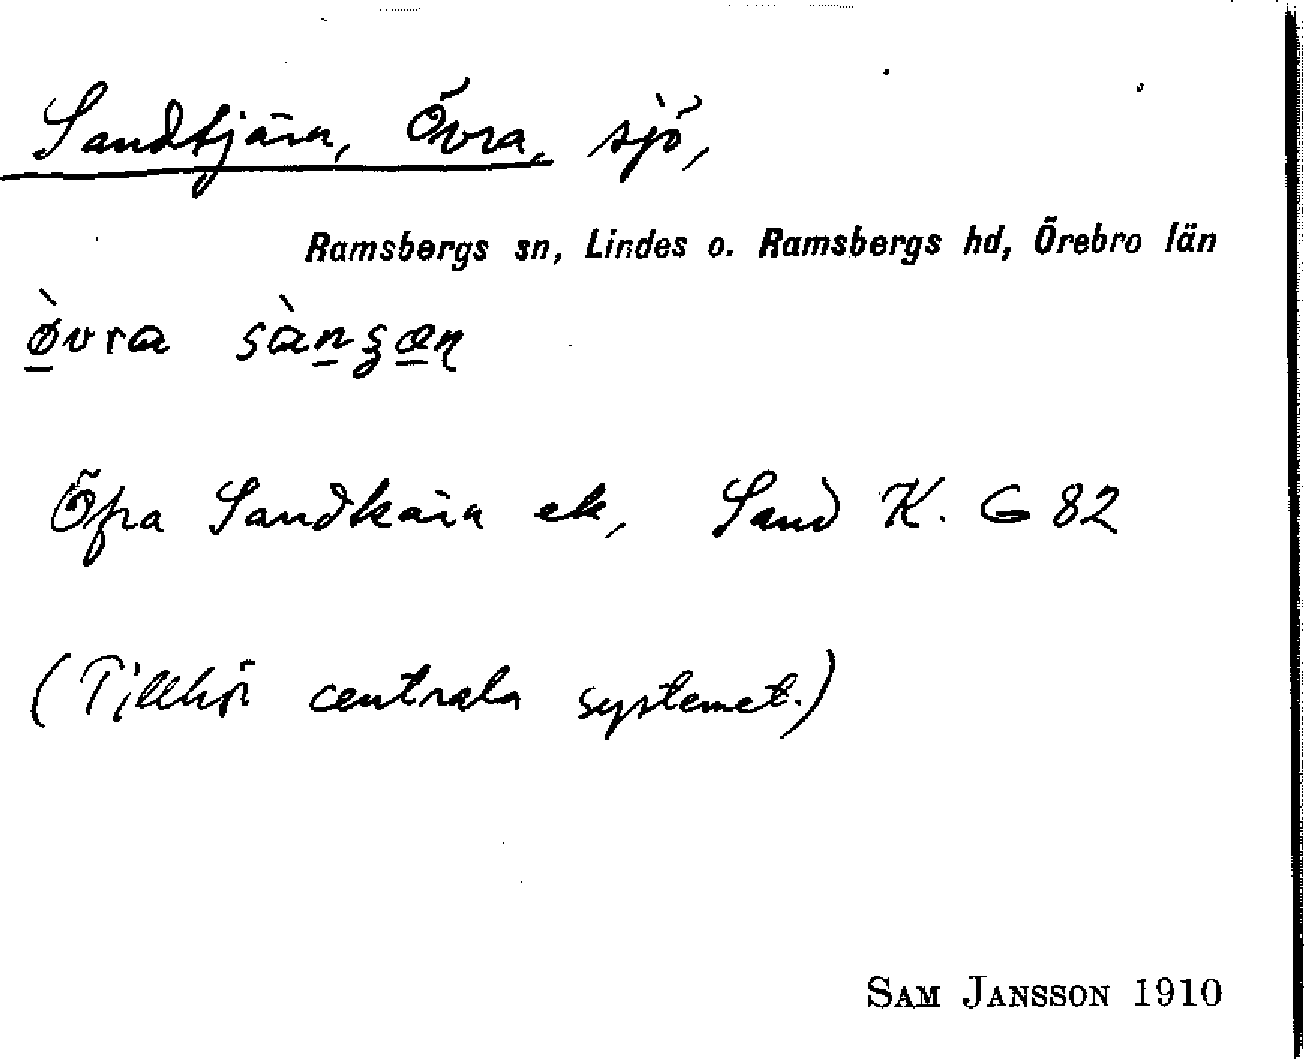 Sandtjärn, Övra, sjö,
Ramsbergs sn, Lindes o. Ramsbergs hd, Örebro län
övra
Öfra Sandkärn ek, Sand K. G 82
(Tillhör centrala systemet.)
SAM JANSSON 1910